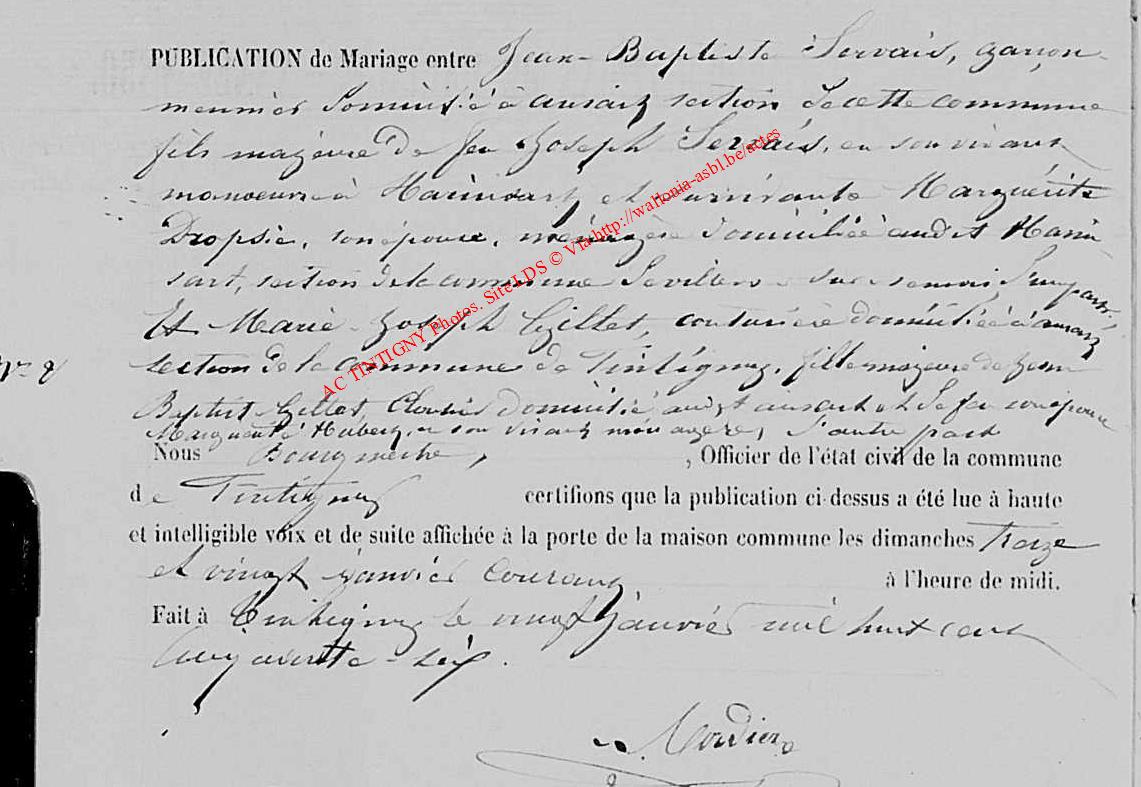 PUBLICATION de Mariage entre Jean-Baptiste Servais, garçon
meunier domicilié à ansart section de cette commune
fils majeure de feu Joseph Servais, en son vivant
manoeuvre à Harinsart, et survivante Marguérite
Dropsie, son épouse, ménagère domiciliée audit Harin
sart, section de la commune de villers-sur-semois, d'une part;
Et Marie-Joseph Gillet, couturière domiciliée à ansart
section de la commune de Tintigny, fille majeure de Jean
Baptist Gillet, domicilié audit ansart et de feu son épouse
Marguerite Hubert, en son vivant ménagère, d'autre part
Nous Bourgmestre, , Officier de l'état civil de la commune
de Tintigny certifions que la publication ci-dessus a été lue à haute
et intelligible voix et de suite affichée à la porte de la maison commune les dimanches treize
et vingt janvier courant à l'heure de midi.
Fait à Tintigny le vingt janvier mil huit cent
cinquante-six.
AC TINTIGNY Photos. Site LDS © Via http://wallonia-asbl.be/actes